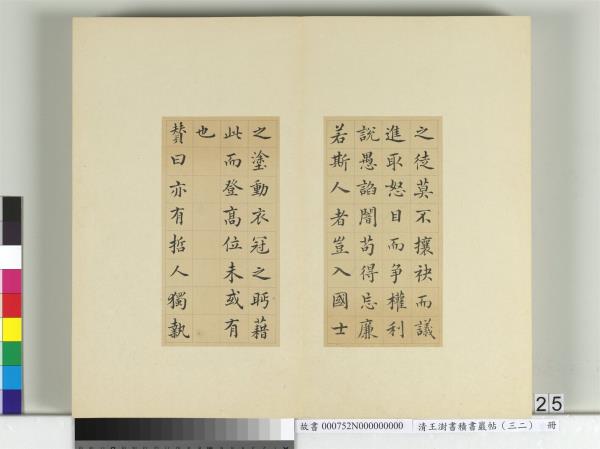 之徒莫不攘袂而議
進取怒目而爭權利
說愚諂闇苟得忘廉
若斯人者豈入國士
之塗動衣冠之眄藉
此而登高位未或有
也
贊曰亦有哲人獨執
25
故書 000752N000000000 清王澍書積書巖帖(三二) 冊